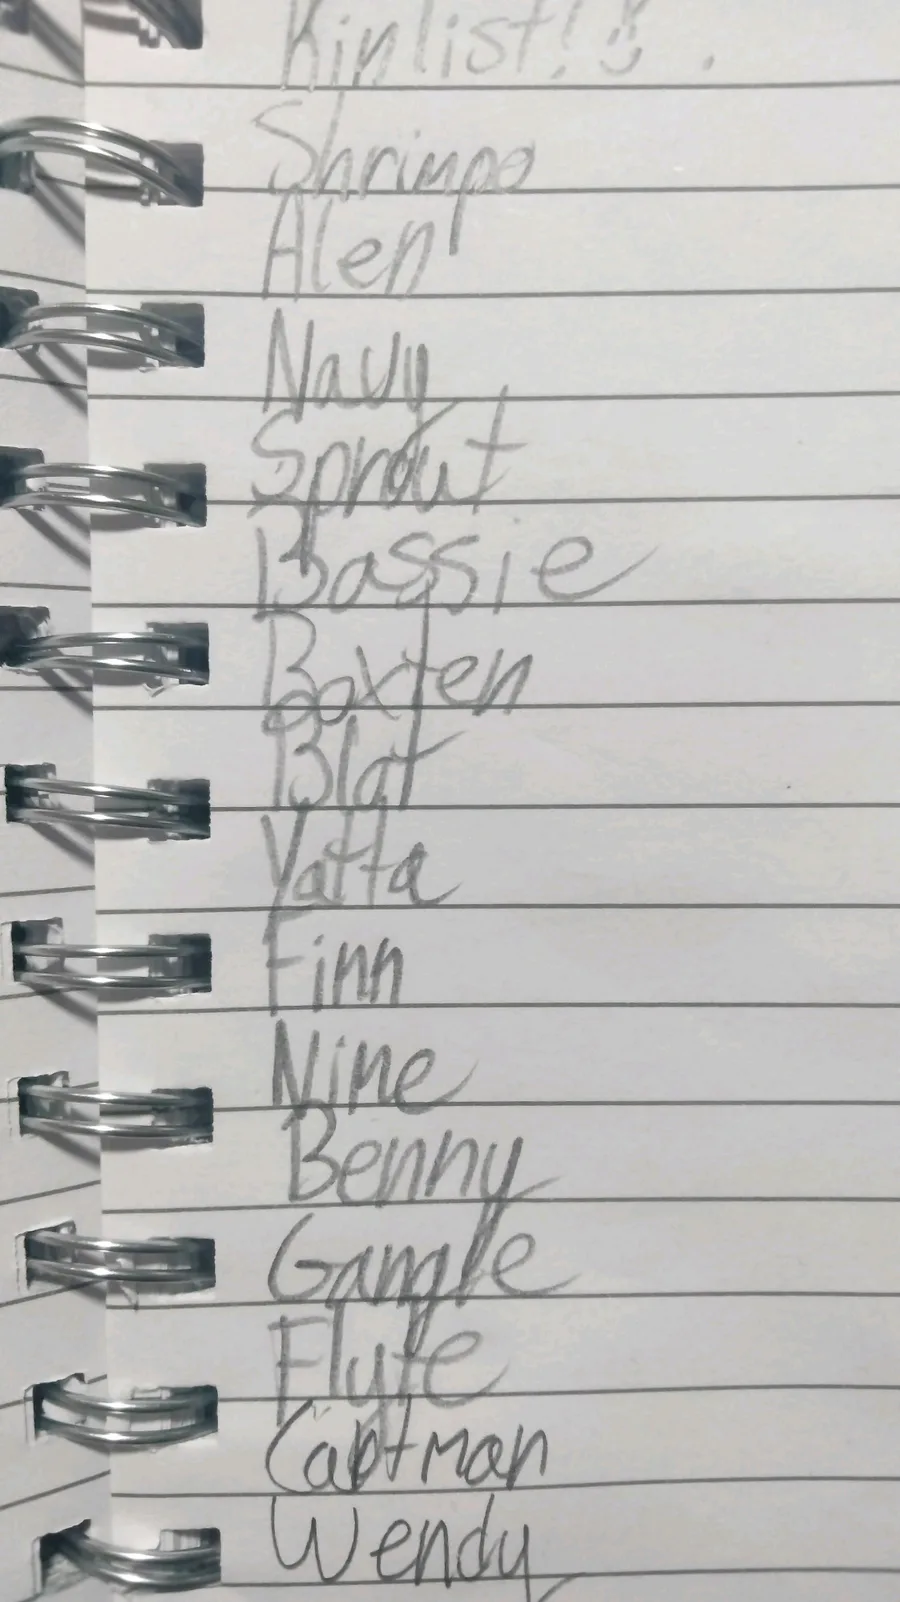 Kinlist! :)
Shrimpo
Alen
Navy
Sprout
Bassie
Boxten
Blot
Yatta
Finn
Nine
Benny
Gangle
Flyte
Cabtman
Wendy